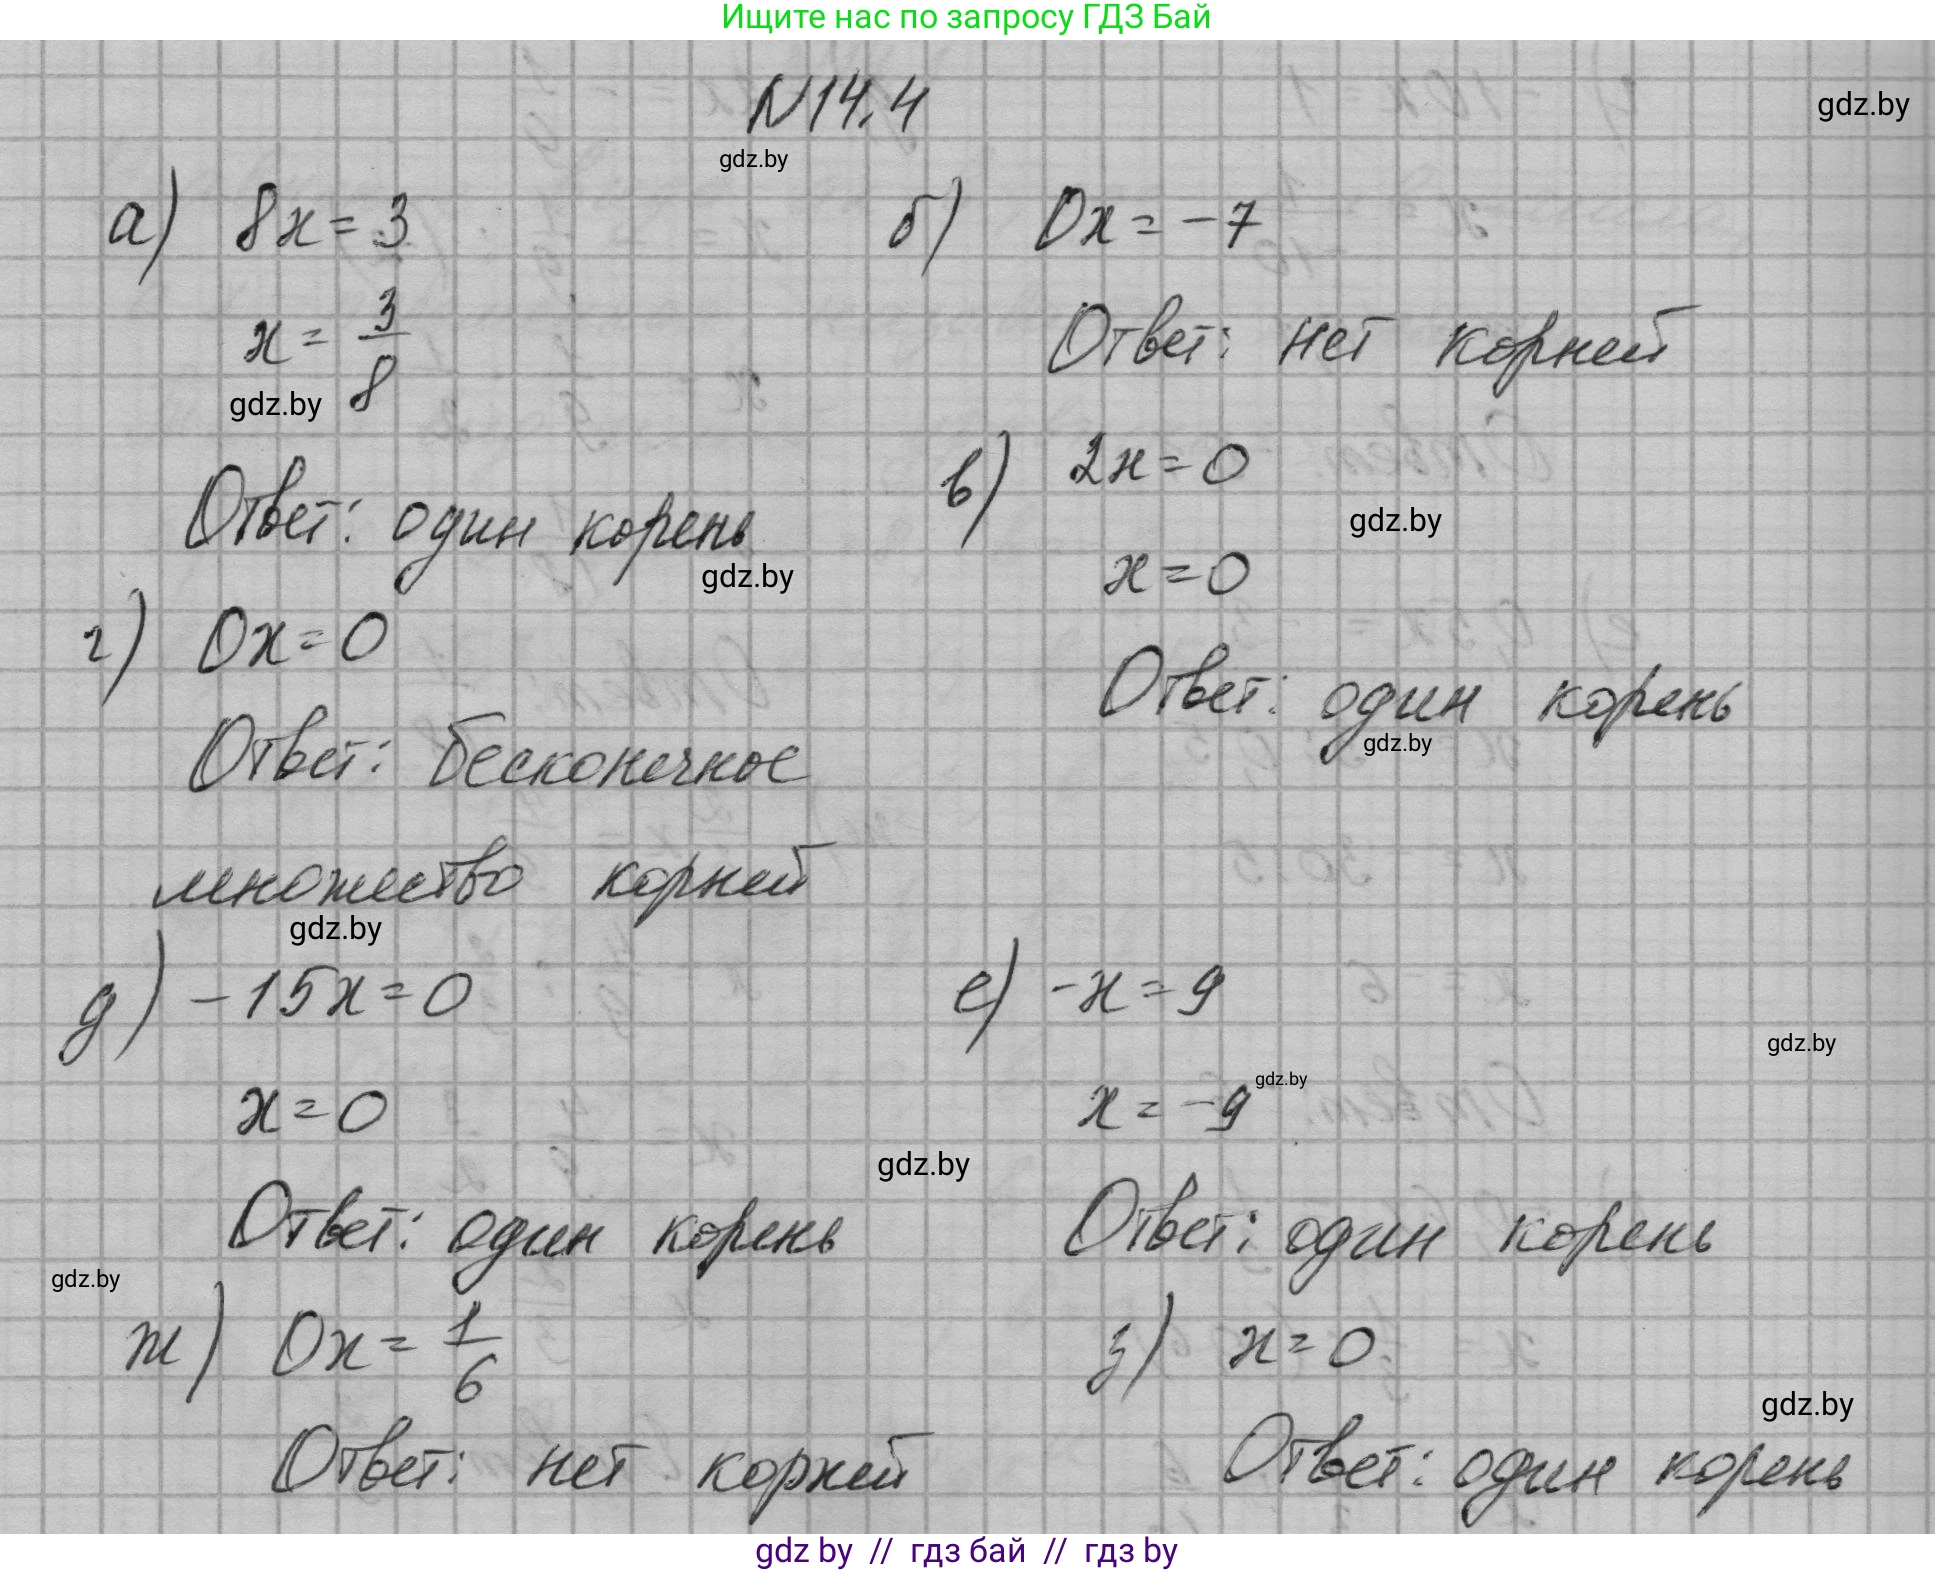 Ищите нас по запросу ГДЗ Бай
N14.4
gdz.by
gdz.by
а) 8x = 3
x = 3/8
gdz.by
Ответ: один корень
gdz.by
б) 0x = -7
Ответ: нет корней
в) 2x = 0
gdz.by
x = 0
Ответ: один корень
gdz.by
г) 0x = 0
Ответ: бесконечное
множество корней
gdz.by
д) -15x = 0
x = 0
Ответ: один корень
gdz.by
е) -x = 9
gdz.by
x = -9
gdz.by
gdz.by
Ответ: один корень
ж) 0x = 1/6
Ответ: нет корней
з) x = 0
gdz.by
Ответ: один корень
gdz by // гдз бай // гдз by